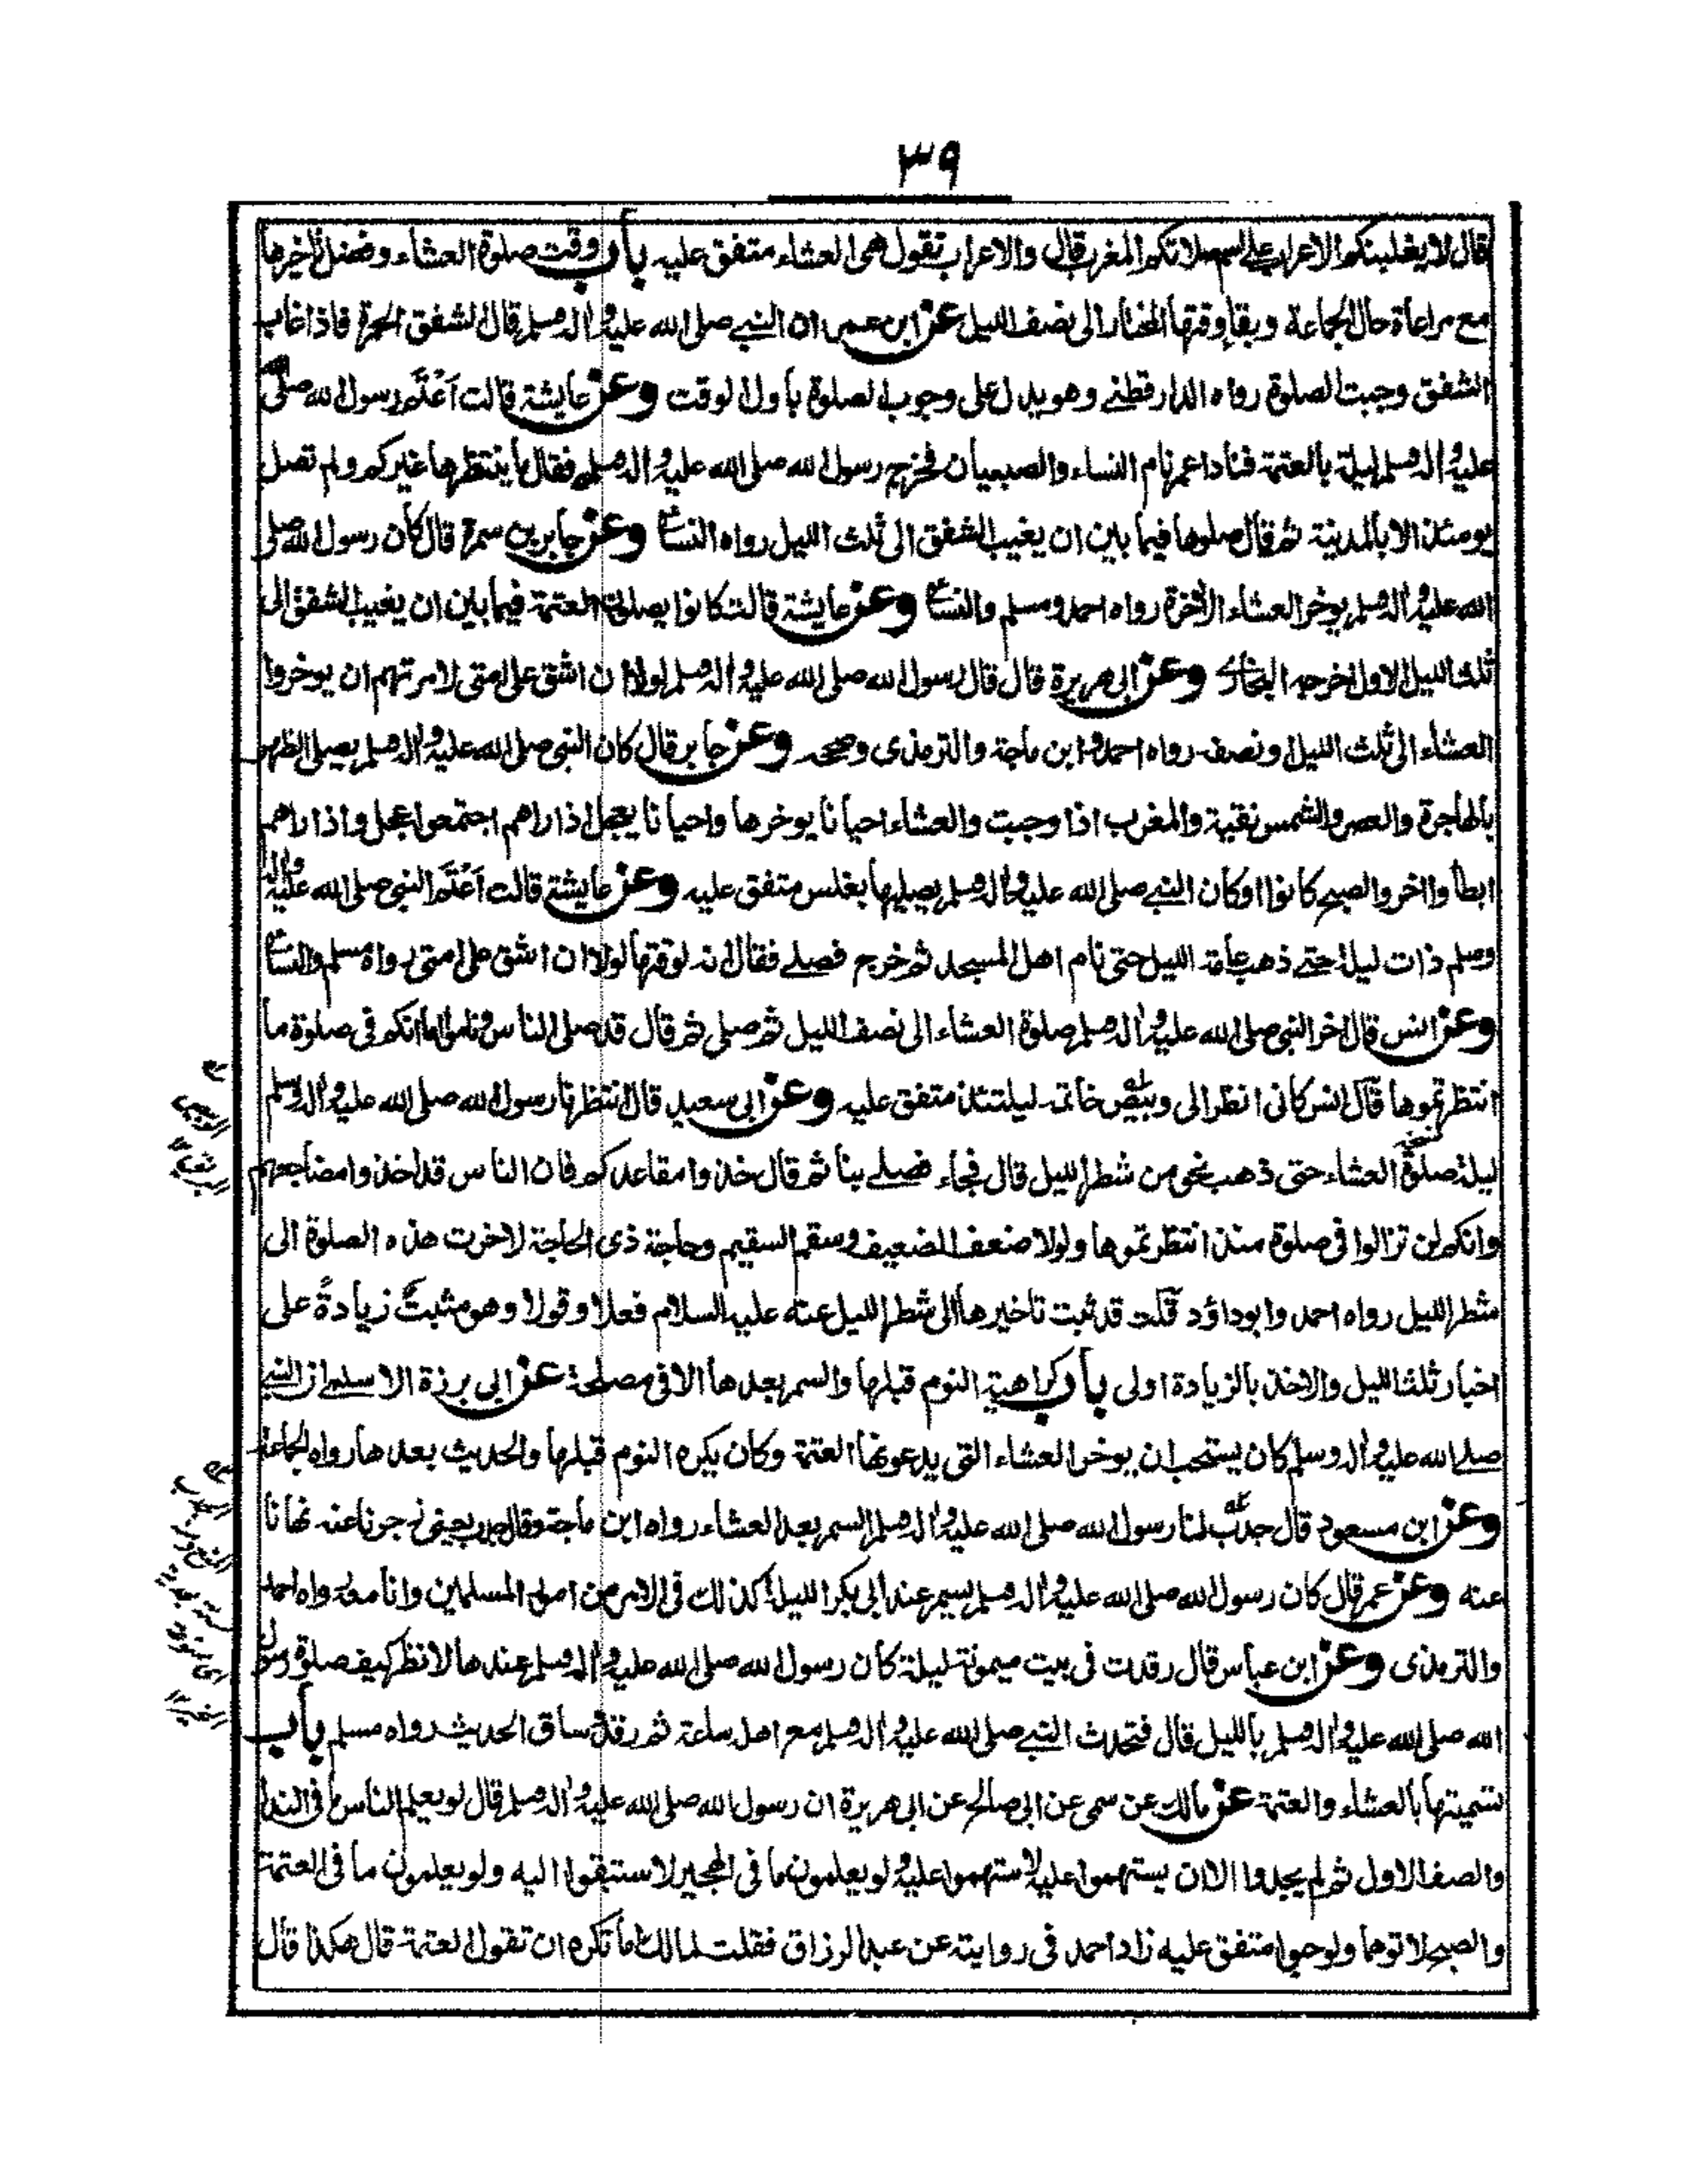 ٣٩
قال لا يغلبنكم الاعراب على اسم صلاتكم المغرب قال والاعراب تقول هى العشاء متفق عليه باب وقت صلوة العشاء وفضل تاخيرها
مع مراعاة حال الجماعة وبقاء وقتها المختار الى نصف الليل عن ابن عمر ان النبي صلى الله عليه واله وسلم قال الشفق الحمرة فاذا غاب
الشفق وجبت الصلوة رواه الدارقطني وهو يدل على وجوب الصلوة باول الوقت وعن عايشة قالت اَعْتَمَ رسول الله صلى الله
عليه واله وسلم ليلة بالعتمة فنادا عمر نام النساء والصبيان فخرج رسول الله صلى الله عليه واله وسلم فقال ما ينتظرها غيركم ولم تصل
يومئذ الا بالمدينة ثم قال صلوها فيما بين ان يغيب الشفق الى ثلث الليل رواه النسائى وعن جابر بن سمرة قال كان رسول الله صلى
الله عليه واله وسلم يوخر العشاء الاخرة رواه احمد ومسلم والنسائى وعن عايشة قالت كانوا يصلون العتمة فيما بين ان يغيب الشفق الى
ثلث الليل الاول اخرجه البخارى وعن ابى هريرة قال قال رسول الله صلى الله عليه واله وسلم لولا ان اشق على امتى لامرتهم ان يوخروا
العشاء الى ثلث الليل ونصف رواه احمد وابن ماجة والترمذى وصححه وعن جابر قال كان النبى صلى الله عليه واله وسلم يصلى الظهر
بالهاجرة والعصر والشمس نقية والمغرب اذا وجبت والعشاء احيانا يوخرها واحيانا يعجل اذا راهم اجتمعوا عجل واذا راهم
ابطأوا اخر والصبح كانوا او كان النبي صلى الله عليه واله وسلم يصليها بغلس متفق عليه وعن عايشة قالت اَعْتَمَ النبى صلى الله عليه واله
وسلم ذات ليلة حتى ذهب عامة الليل حتى نام اهل المسجد ثم خرج فصلى فقال انه لوقتها لولا ان اشق على امتى رواه مسلم والنسائى
وعن انس قال اخر النبى صلى الله عليه واله وسلم صلوة العشاء الى نصف الليل ثم صلى ثم قال قد صلى الناس وناموا اما انكم فى صلوة ما
انتظرتموها قال انس كانى انظر الى وبيص خاتمه ليلتئذ متفق عليه وعن ابى سعيد قال انتظرنا رسول الله صلى الله عليه واله وسلم
ليلة صلوة العشاء حتى ذهب نحو من شطر الليل قال فجاء فصلى بنا ثم قال خذوا مقاعدكم فان الناس قد اخذوا مضاجعهم
وانكم لن تزالوا فى صلوة منذ انتظرتموها ولولا ضعف الضعيف وسقم السقيم وحاجة ذى الحاجة لاخرت هذه الصلوة الى
شطر الليل رواه احمد وابوداؤد قلت قد ثبت تاخيرها الى شطر الليل عنه عليه السلام فعلا وقولا وهو مثبت زيادةً على
اخبار ثلث الليل والاخذ بالزيادة اولى باب كراهية النوم قبلها والسمر بعدها الا فى مصلحة عن ابى برزة الاسلمى ان النبي
صلى الله عليه واله وسلم كان يستحب ان يوخر العشاء التى يدعونها العتمة وكان يكره النوم قبلها والحديث بعدها رواه الجماعة
وعن ابن مسعود قال جدب لنا رسول الله صلى الله عليه واله وسلم السمر بعد العشاء رواه ابن ماجة وقال جدب يعنى زجرنا عنه نهانا
عنه وعن عمر قال كان رسول الله صلى الله عليه واله وسلم يسمر عند ابى بكر الليل كذلك فى الامر من امر المسلمين وانا معه رواه احمد
والترمذى وعن ابن عباس قال رقدت فى بيت ميمونة ليلة كان رسول الله صلى الله عليه واله وسلم عندها لانظر كيف صلوة رسول
الله صلى الله عليه واله وسلم بالليل قال فتحدث النبي صلى الله عليه واله وسلم مع اهله ساعة ثم رقد وساق الحديث رواه مسلم باب
تسميتها بالعشاء والعتمة عن مالك عن سمى عن ابى صالح عن ابى هريرة ان رسول الله صلى الله عليه واله وسلم قال لو يعلم الناس ما فى الندا
والصف الاول ثم لم يجدوا الا ان يستهموا عليه لاستهموا عليه ولو يعلمون ما فى التهجير لاستبقوا اليه ولو يعلمون ما فى العتمة
والصبح لاتوهما ولو حبوا متفق عليه زاد احمد فى رواية عن عبد الرزاق فقلت لمالك اما تكره ان تقول العتمة قال هكذا قال